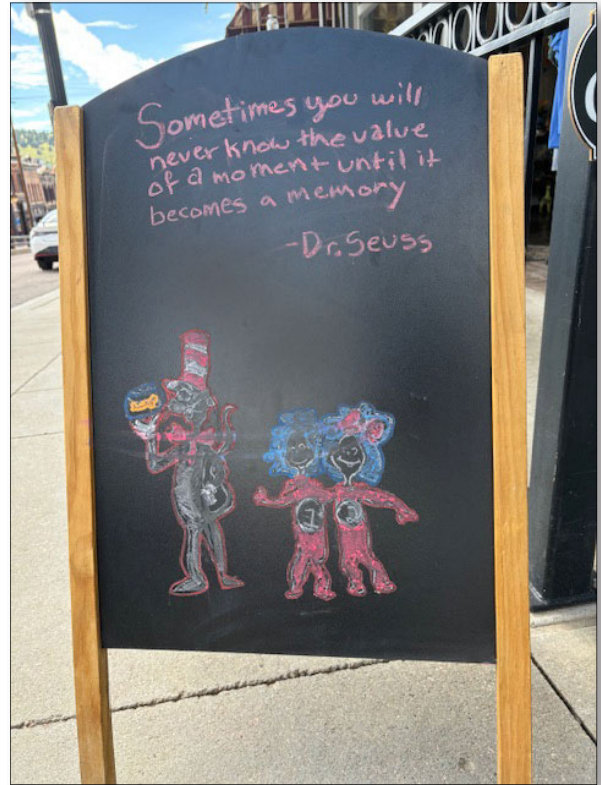 Sometimes you will
never know the value
of a moment until it
becomes a memory
-Dr. Seuss
1